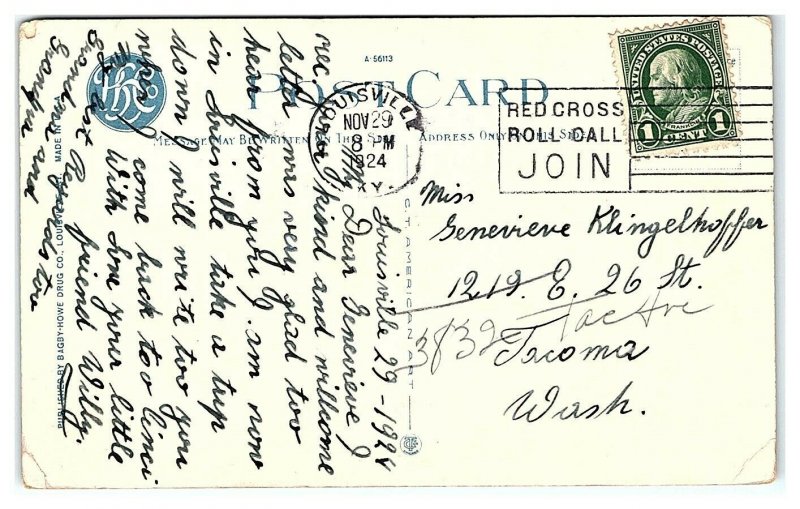 A-56113
POST CARD
MESSAGE MAY BE WRITTEN ON THIS SIDE
ADDRESS ONLY ON THIS SIDE
LOUISVILLE
NOV 29
8 PM
1924
KY.
RED CROSS
ROLL CALL
JOIN
UNITED STATES POSTAGE
FRANKLIN
1 CENT 1
Louisville 29-1924
My Dear Genevieve I
rec your kind and wellhome
letter mrs very glad too
hear from you I. am now
in Louisville take a trip
down I will write too you
when I come back too Cinci
With Love your little
friend Willy.
My best Regards too
Grandma and
Grandpa
Miss
Genevieve Klingelhoffer
1219. E. 26 St.
3832 Tac Ave
Tacoma
Wash.
PUBLISHED BY BAGBY-HOWE DRUG CO., LOUISVILLE, KY.
MADE IN
CT AMERICAN ART